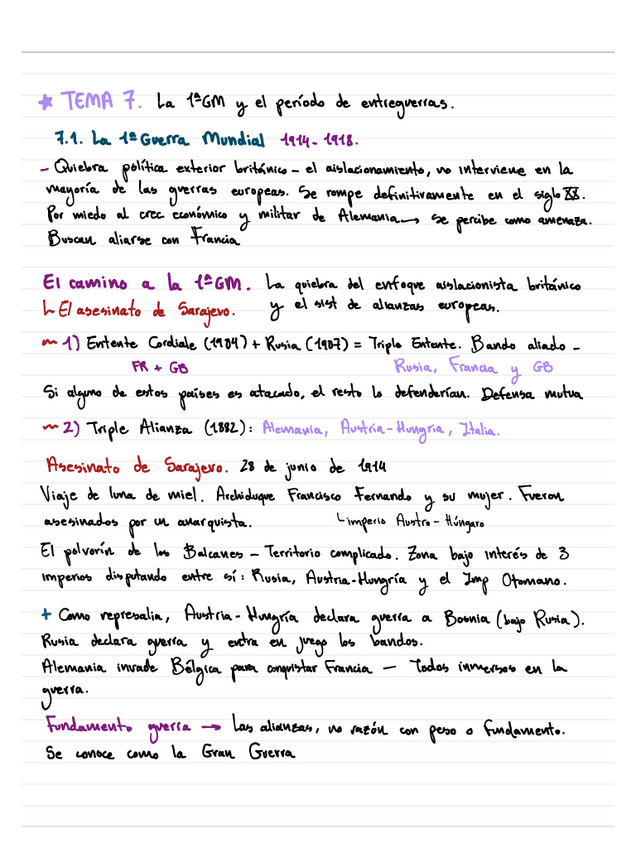 * TEMA 7. La 1ªGM y el período de entreguerras.
7.1. La 1ª Guerra Mundial 1914-1918.
- Quiebra política exterior británico - el aislacionamiento, no interviene en la
mayoría de las guerras europeas. Se rompe definitivamente en el siglo XX.
Por miedo al crec económico y militar de Alemania → se percibe como amenaza.
Buscan aliarse con Francia
El camino a la 1ªGM. La quiebra del enfoque aislacionista británico
↳ El asesinato de Sarajevo. y el sist de alianzas europeas.
1) Entente Cordiale (1904) + Rusia (1907) = Triple Entente. Bando aliado -
FR + GB Rusia, Francia y GB
Si alguno de estos países es atacado, el resto lo defenderían. Defensa mutua
2) Triple Alianza (1882): Alemania, Austria-Hungría, Italia.
Asesinato de Sarajevo. 28 de junio de 1914
Viaje de luna de miel. Archiduque Francisco Fernando y su mujer. Fueron
asesinados por un anarquista. ↳ imperio Austro-Húngaro
El polvorín de los Balcanes - Territorio complicado. Zona bajo interés de 3
imperios disputando entre sí: Rusia, Austria-Hungría y el Imp Otomano.
+ Como represalia, Austria-Hungría declara guerra a Bosnia (bajo Rusia).
Rusia declara guerra y entra en juego los bandos.
Alemania invade Bélgica para conquistar Francia - Todos inmersos en la
guerra.
Fundamento guerra → Las alianzas, no razón con peso o fundamento.
Se conoce como la Gran Guerra